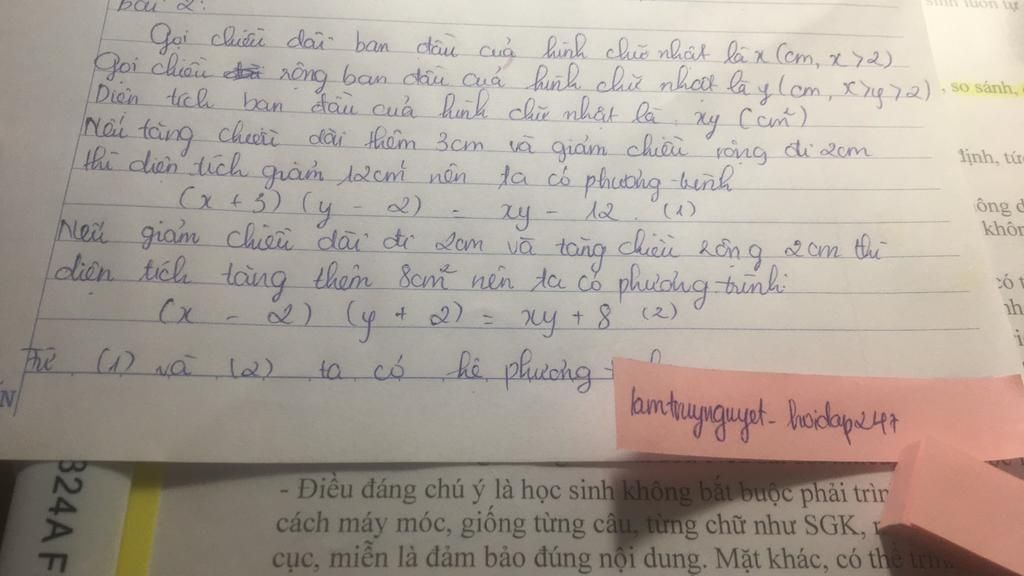 bài 2:
Gọi chiều dài ban đầu của hình chữ nhật là x (cm, x > 2)
Gọi chiều rộng ban đầu của hình chữ nhật là y (cm, x > y > 2)
Diện tích ban đầu của hình chữ nhật là xy (cm²)
Nếu tăng chiều dài thêm 3cm và giảm chiều rộng đi 2cm
thì diện tích giảm 12cm² nên ta có phương trình
(x + 3) (y - 2) = xy - 12 (1)
Nếu giảm chiều dài đi 2cm và tăng chiều rộng 2cm thì
diện tích tăng thêm 8cm² nên ta có phương trình:
(x - 2) (y + 2) = xy + 8 (2)
Từ (1) và (2) ta có hệ phương
lamtruynguyet - hoidap247
N
324A F
, so sánh,
định, tức
ông
khôn
có
- Điều đáng chú ý là học sinh không bắt buộc phải
cách máy móc, giống từng câu, từng chữ như SGK,
cục, miễn là đảm bảo đúng nội dung. Mặt khác, có thể